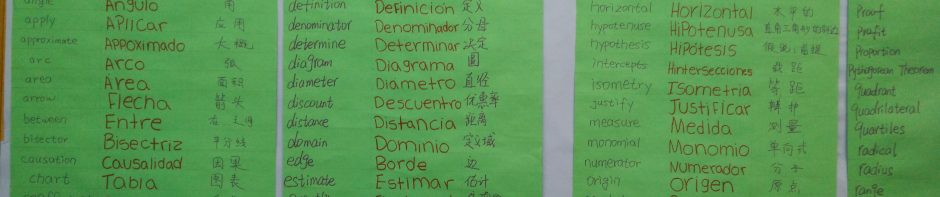 angle Angulo 角
apply Aplicar 应用
approximate Approximado 大概
arc Arco 弧
area Area 面积
arrow Flecha 箭头
between Entre 在 之间
bisector Bisectriz 平分线
causation Causalidad 因果
chart Tabla 图表
definition Definicion 定义
denominator Denominador 分母
determine Determinar 决定
diagram Diagrama 圆
diameter Diametro 直径
discount Descuento 优惠率
distance Distancia 距离
domain Dominio 定义域
edge Borde 边
estimate Estimar 估计
horizontal Horizontal 水平的
hypotenuse Hipotenusa 直角三角形的斜边
hypothesis Hipotesis 假设;前提
intercepts Hintersecciones 截距
isometry Isometria 等距
justify Justificar 辩护
measure Medida 测量
monomial Monomio 单向式
numerator Numerador 分子
origin Origen 原点
Proof
Profit
Proportion
Pythagorean Theorem
quadrant
quadrilateral
quartiles
radical
radius
range